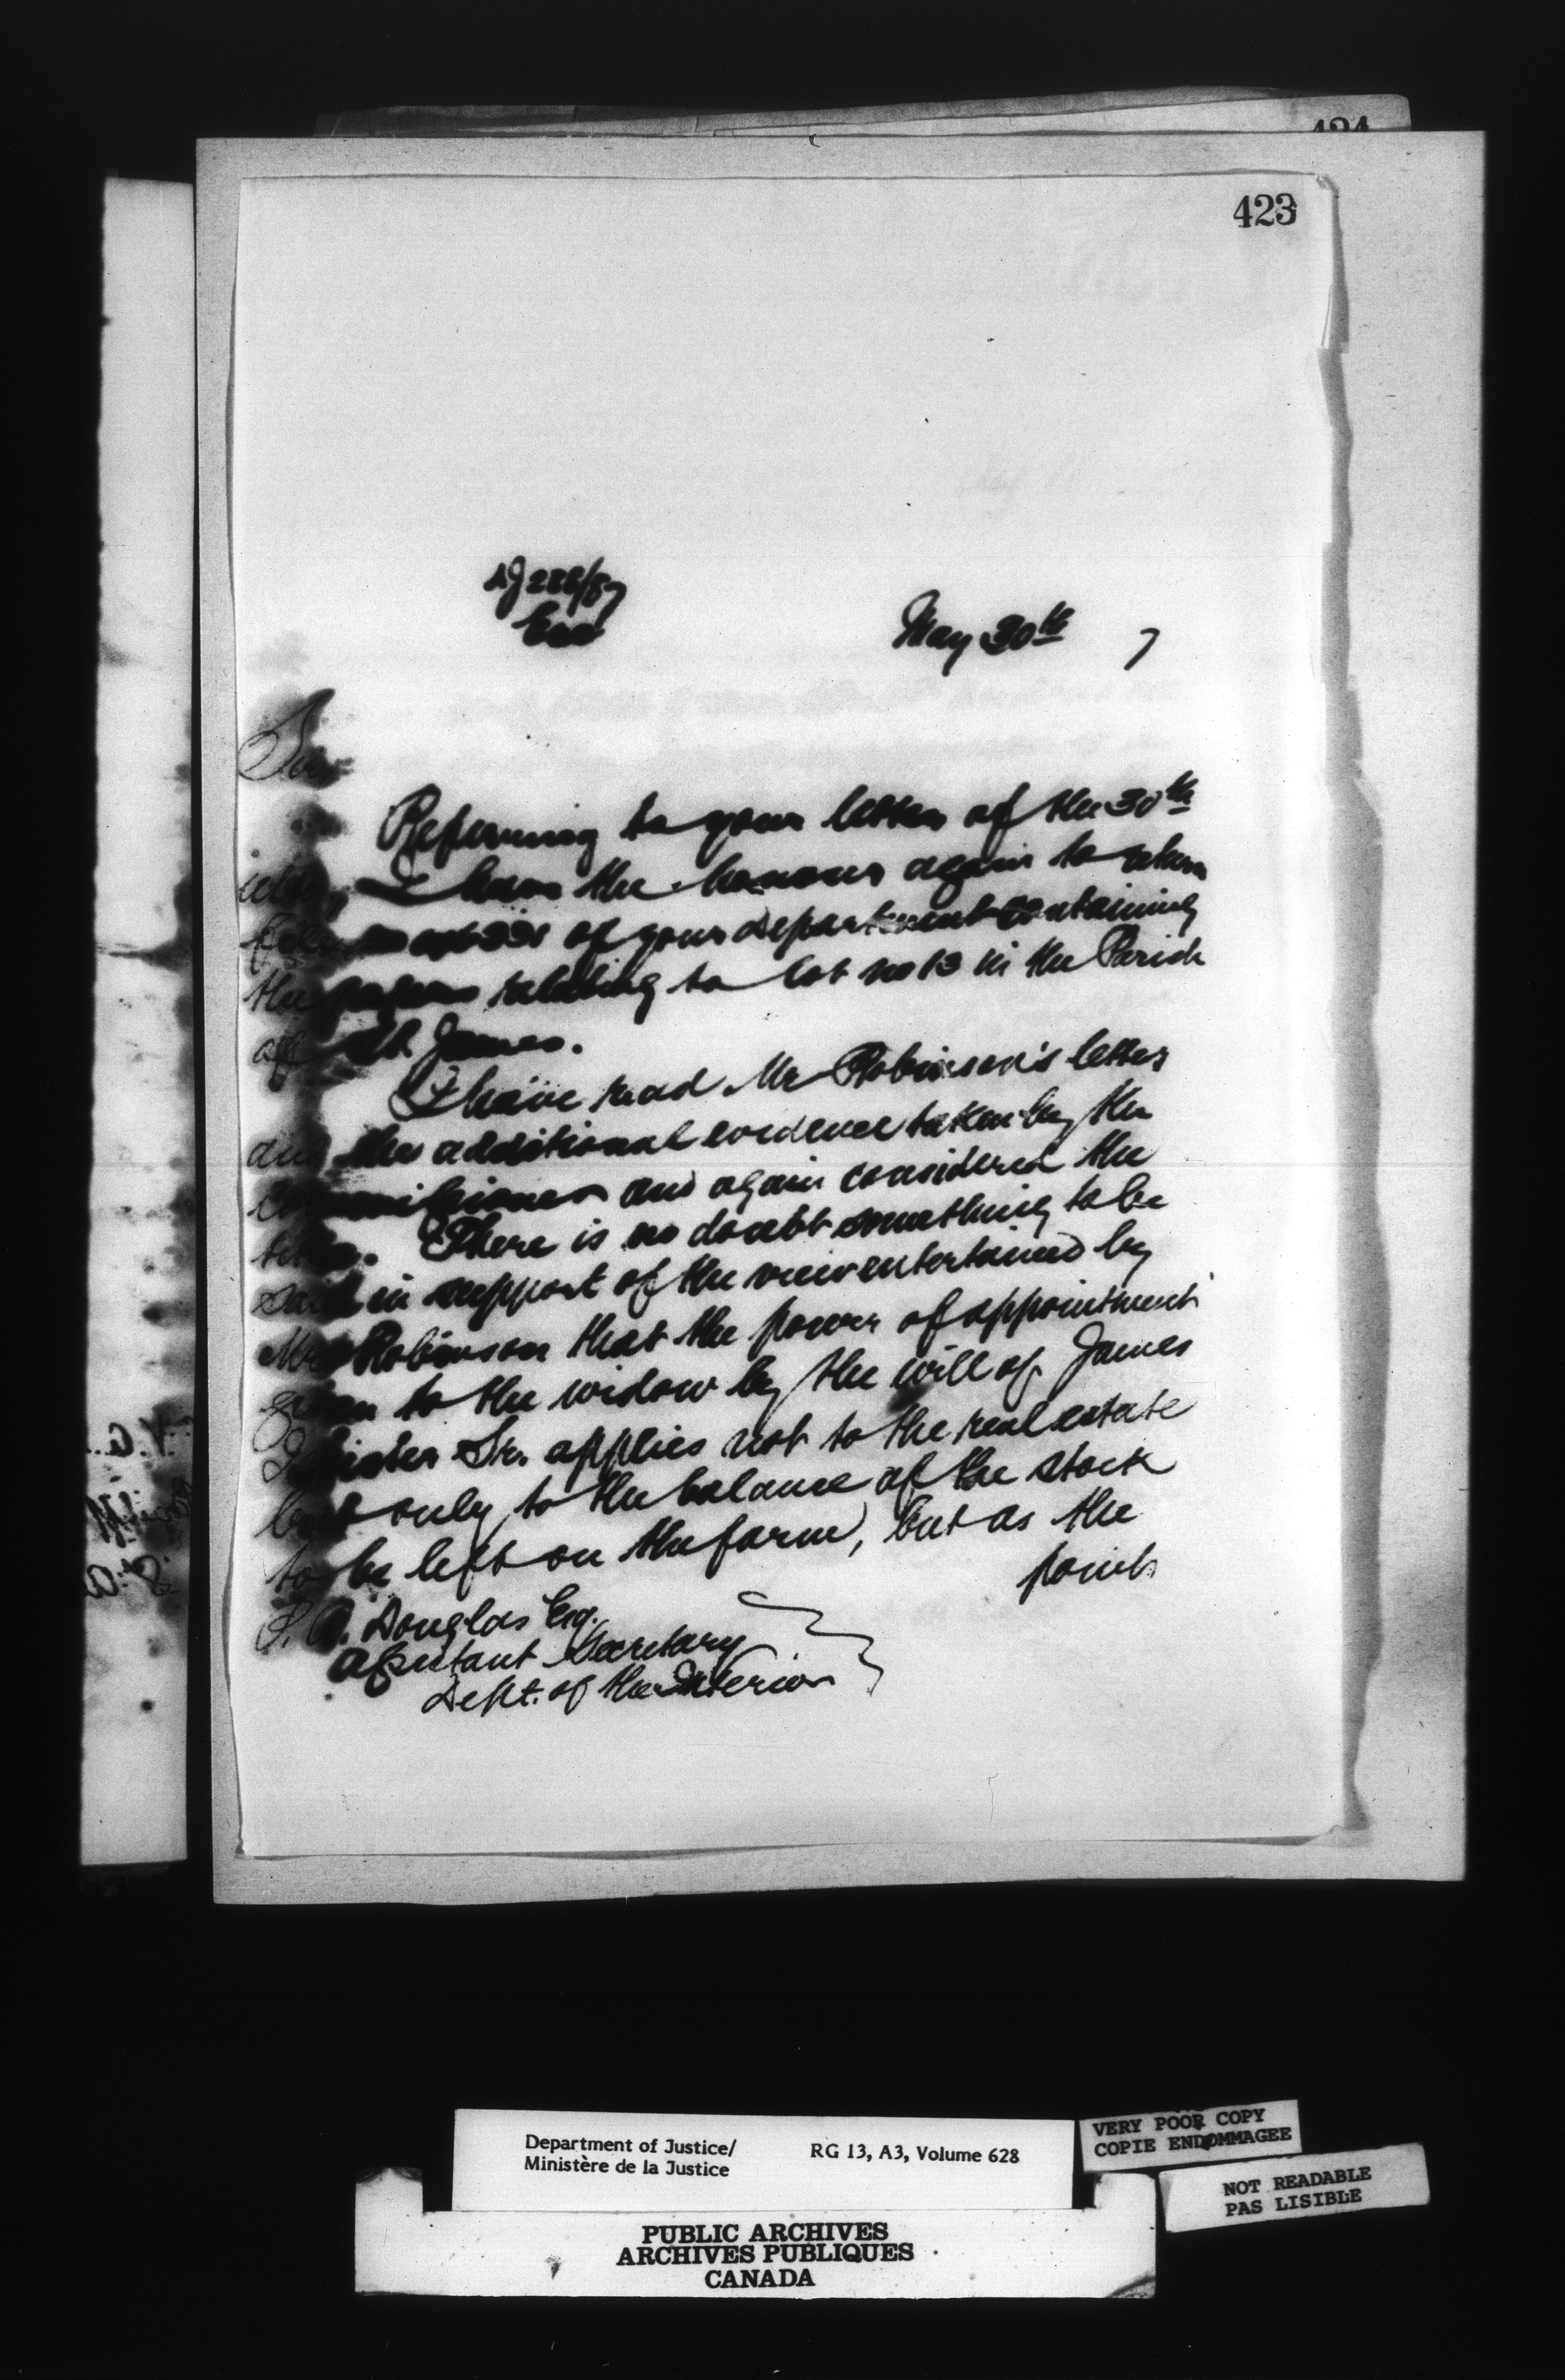 423
May 30th 7
Sir
Referring to your letter of the 30th
I have the honour again to return
of your department containing
the papers relating to lot no 13 in the Parish
of St. James.
I have read Mr Robinson's letter
and the additional evidence taken by the
Commissioner and again considered the
There is no doubt something to be
said in support of the view entertained by
Mr Robinson that the power of appointment
given to the widow by the will of James
Sr. applies not to the real estate
but only to the balance of the stock
to be left on the farm, but as the
point
P. Douglas Esq.
Assistant Secretary
Dept. of the Interior
Department of Justice/ RG 13, A3, Volume 628
Ministère de la Justice
VERY POOR COPY
COPIE ENDOMMAGEE
NOT READABLE
PAS LISIBLE
PUBLIC ARCHIVES
ARCHIVES PUBLIQUES
CANADA